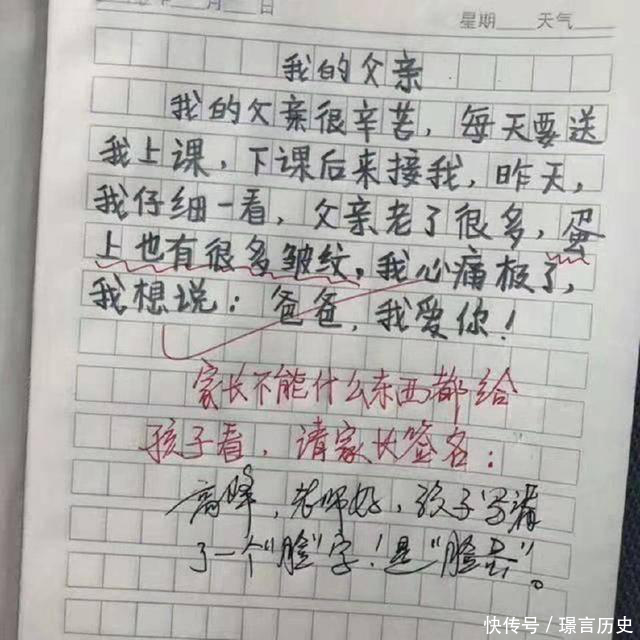 月 日
星期 天气
我的父亲
我的父亲很辛苦，每天要送
我上课，下课后来接我，昨天，
我仔细一看，父亲老了很多，蛋
上也有很多皱纹，我心痛极了，
我想说：爸爸，我爱你！
家长不能什么东西都给
孩子看，请家长签名：
高峰，老师好，孩子写漏
了一个“脸”字！是“脸蛋”。
快传号／璟言历史